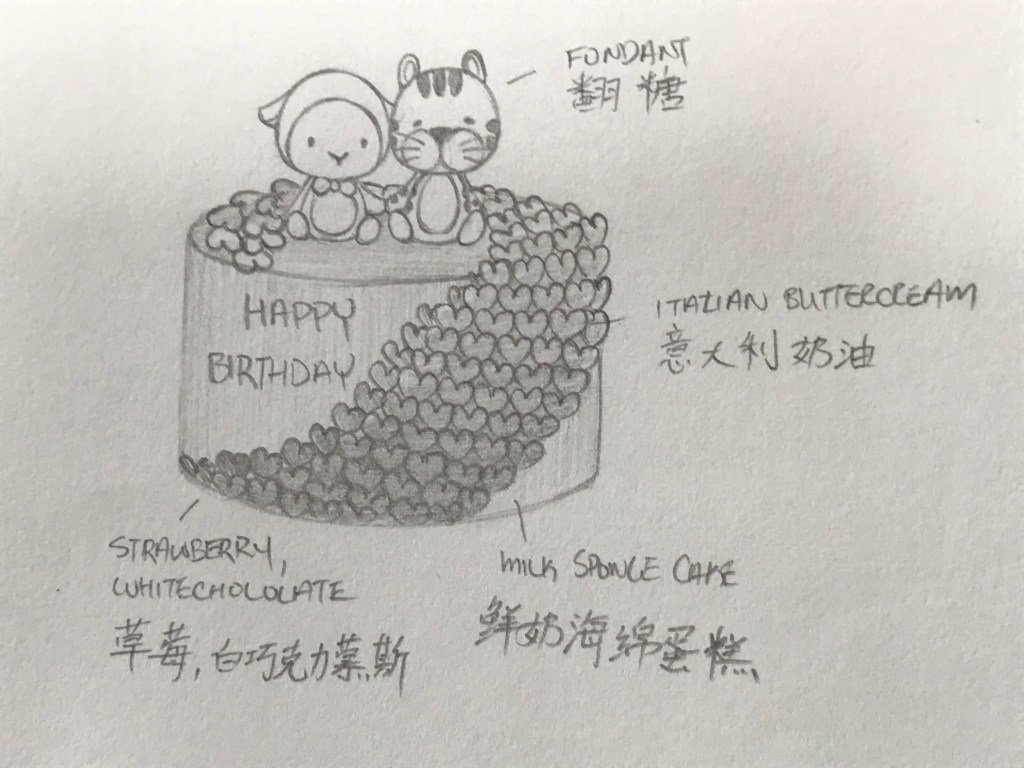 FONDANT
翻糖
HAPPY
BIRTHDAY
ITALIAN BUTTERCREAM
意大利奶油
STRAWBERRY,
WHITECHOLOLATE
草莓,白巧克力慕斯
MILK SPONGE CAKE
鲜奶海绵蛋糕